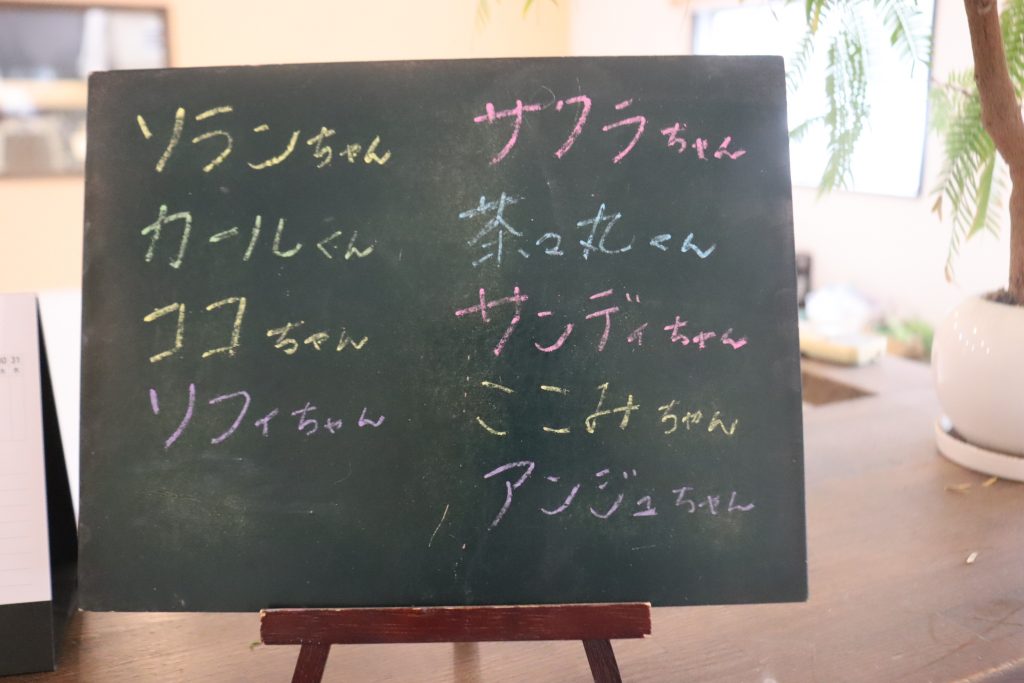 ソランちゃん
カールくん
ココちゃん
ソフィちゃん
サクラちゃん
茶々丸くん
サンディちゃん
ここみちゃん
アンジュちゃん